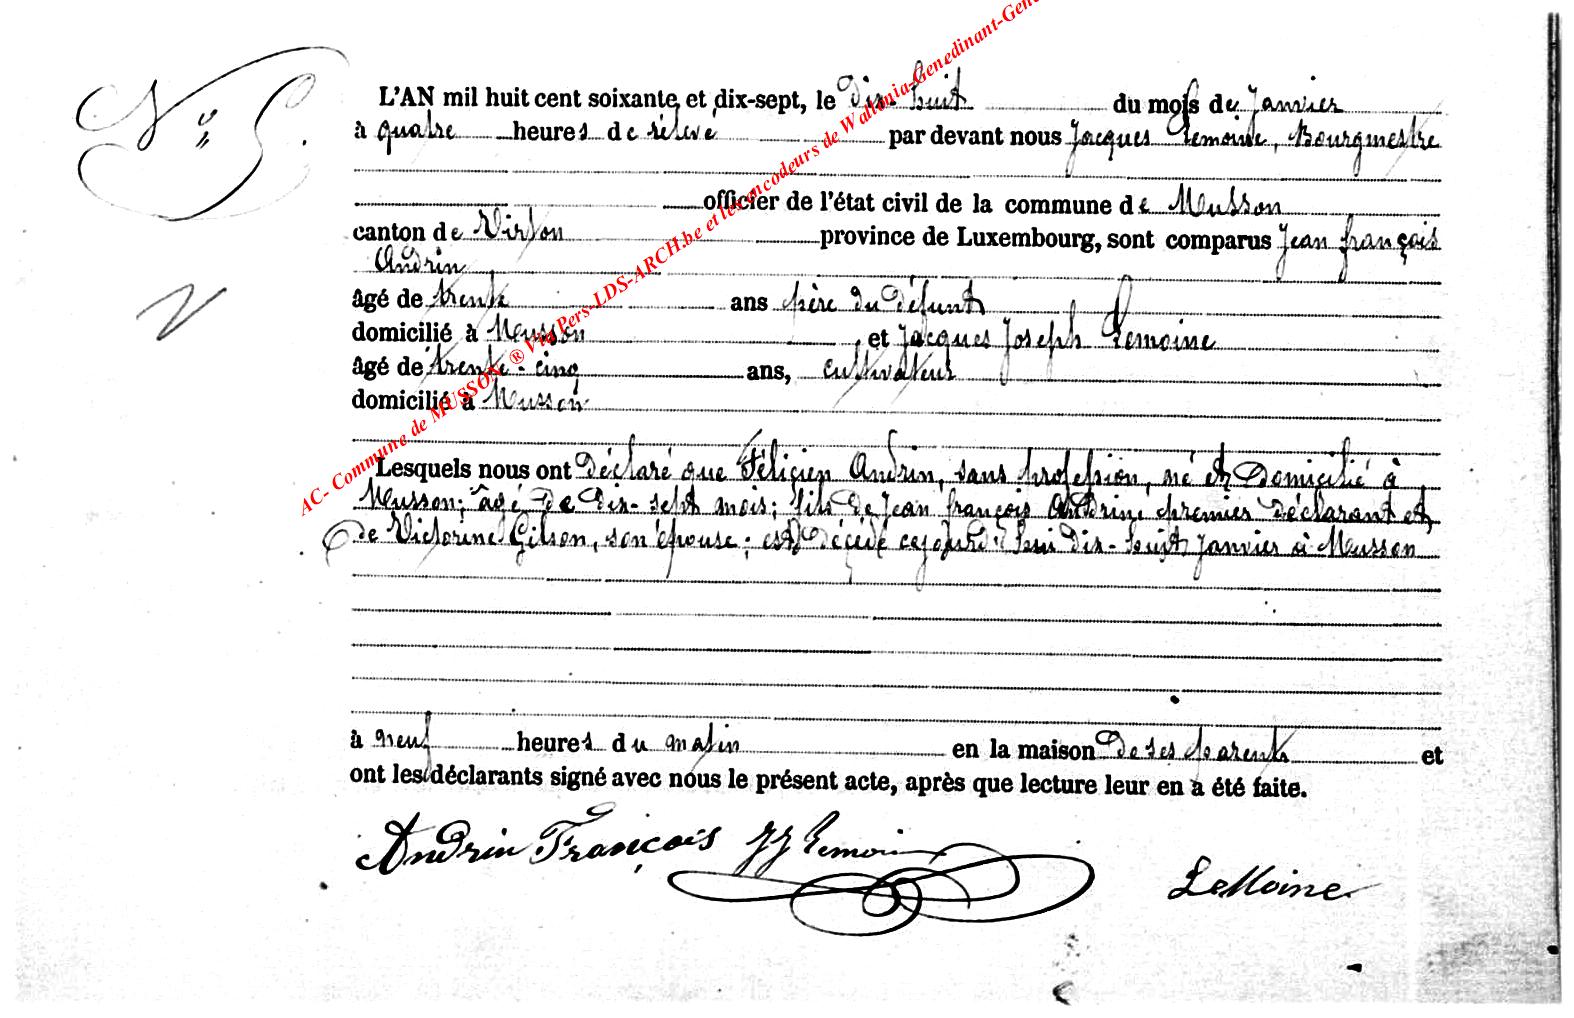 N° 5.
L'AN mil huit cent soixante et dix-sept, le dix-huit du mois de Janvier
à quatre heures de relevé par devant nous Jacques Lemoine, Bourgmestre
officier de l'état civil de la commune de Musson
canton de Virton province de Luxembourg, sont comparus Jean françois
Andrin
âgé de trente ans père du défunt
domicilié à Musson et Jacques Joseph Lemoine
âgé de trente-cinq ans, cultivateur
domicilié à Musson
Lesquels nous ont déclaré que Félicien Andrin, sans profession, né et domicilié à
Musson; âgé de dix-sept mois; fils de Jean françois Andrin premier déclarant et
de Victorine Gilson, son épouse; est décédé cejourd'hui dix-huit Janvier à Musson
à neuf heures du matin en la maison de ses parents et
ont les déclarants signé avec nous le présent acte, après que lecture leur en a été faite.
Andrin François JJ Lemoine LeMoine
AC- Commune de MUSSON ® Via Pers-LDS-ARCH.be et les encodeurs de Wallonia-Genedinant-Gen